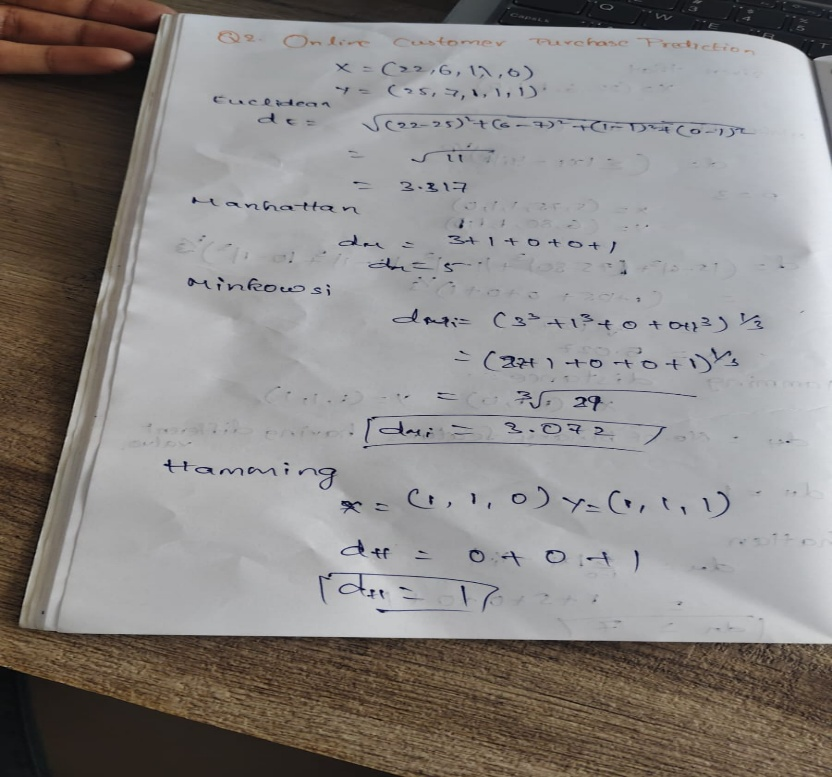 Q2. Online Customer Purchase Prediction
X = (22, 6, 1, 1, 0)
Y = (25, 7, 1, 1, 1)
Euclidean
dE = √(22-25)²+(6-7)²+(1-1)²+(0-1)²
= √11
= 3.317
Manhattan
dM = 3+1+0+0+1
dM = 5
Minkowsi
dMi = (3³+1³+0+0+1³)^1/3
= (27+1+0+0+1)^1/3
= ³√29
dMi = 3.072
Hamming
X = (1, 1, 0) Y = (1, 1, 1)
dH = 0 + 0 + 1
dH = 1